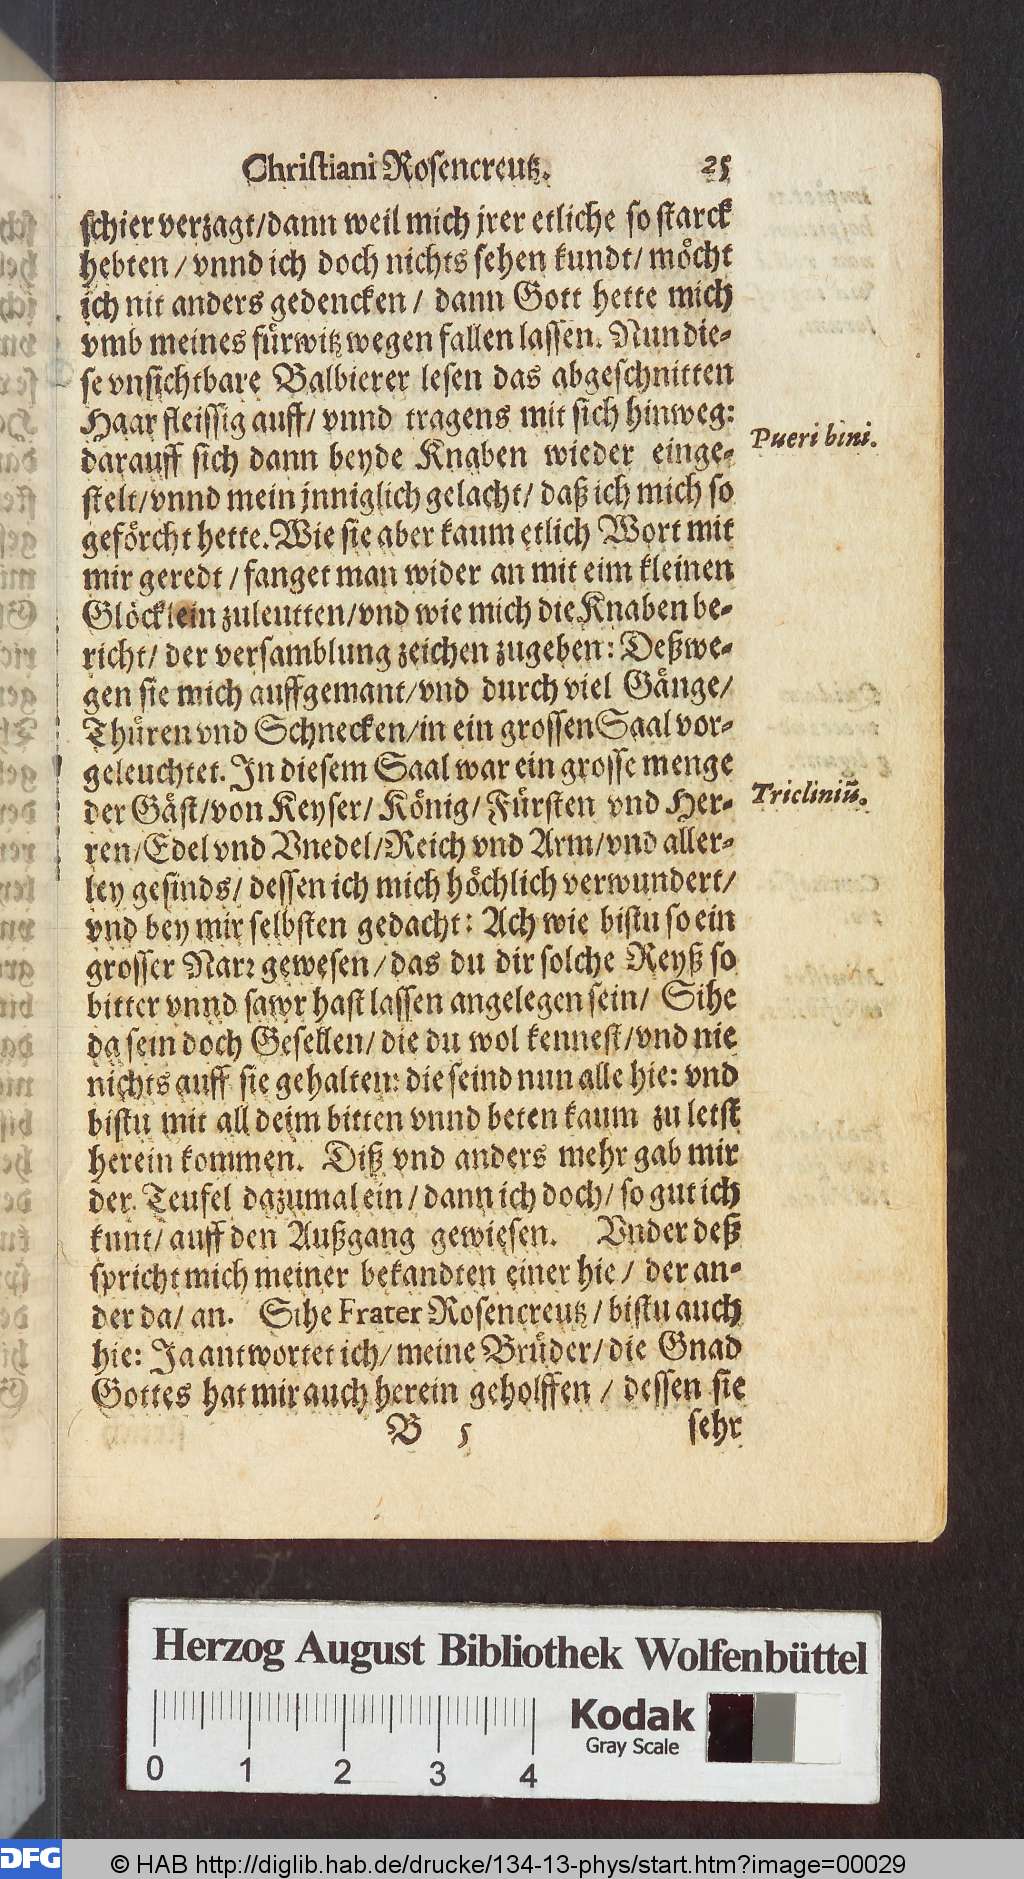 Christiani Rosencreutz. 25
schier verzagt/dann weil mich jrer etliche so starck
hebten / vnnd ich doch nichts sehen kundt/ moͤcht
ich nit anders gedencken / dann Gott hette mich
vmb meines fuͤrwitz wegen fallen lassen. Nun die-
se vnsichtbare Balbierer lesen das abgeschnitten
Haar fleissig auff/ vnnd tragens mit sich hinweg:
darauff sich dann beyde Knaben wieder einge-
Pueri bini.
stelt/vnnd mein jnniglich gelacht/ daß ich mich so
gefoͤrcht hette. Wie sie aber kaum etlich Wort mit
mir geredt / fanget man wider an mit eim kleinen
Gloͤcklein zuleutten/vnd wie mich die Knaben be-
richt/ der versamblung zeichen zugeben: Deßwe-
gen sie mich auffgemant/vnd durch viel Gaͤnge/
Thuͤren vnd Schnecken/in ein grossen Saal vor-
geleuchtet. In diesem Saal war ein grosse menge
Tricliniũ.
der Gaͤst/von Keyser/ Koͤnig/ Fuͤrsten vnd Her-
ren/Edel vnd Vnedel/Reich vnd Arm/vnd aller-
ley gesinds/ dessen ich mich hoͤchlich verwundert/
vnd bey mir selbsten gedacht: Ach wie bistu so ein
grosser Narr gewesen/das du dir solche Reyß so
bitter vnnd sawr hast lassen angelegen sein/ Sihe
da sein doch Gesellen/die du wol kennest/vnd nie
nichts auff sie gehalten: die seind nun alle hie: vnd
bistu mit all deim bitten vnnd beten kaum zu letst
herein kommen. Diß vnd anders mehr gab mir
der Teufel dazumal ein/dann ich doch/ so gut ich
kunt/ auff den Außgang gewiesen. Vnder deß
spricht mich meiner bekandten einer hie / der an-
der da/ an. Sihe Frater Rosencreutz / bistu auch
hie: Ja antwortet ich/meine Bruͤder/die Gnad
Gottes hat mir auch herein geholffen / dessen sie
B 5 sehr
Herzog August Bibliothek Wolfenbüttel
0 1 2 3 4
Kodak
Gray Scale
DFG © HAB http://diglib.hab.de/drucke/134-13-phys/start.htm?image=00029